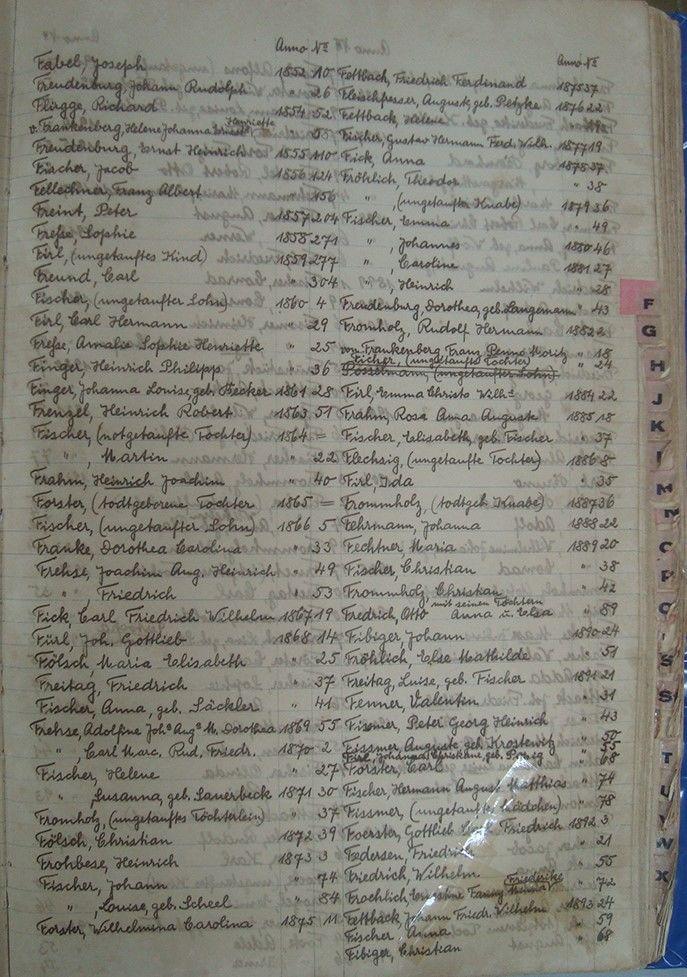 Anno No
Fabel, Joseph 1852 10
Freudenburg, Johann Rudolph " 26
Flügge, Richard 1854 52
v. Frankenberg, Helene Johanna Henriette " 53
Freudenburg, Ernst Heinrich 1855 110
Fischer, Jacob 1856 124
Fellechner, Franz Albert " 156
Freint, Peter 1857 204
Frese, Sophie 1858 271
Firl, (ungetauftes Kind) 1859 277
Freund, Carl " 304
Fischer, (ungetaufter Sohn) 1860 4
Firl, Carl Hermann " 29
Frese, Amalie Sophie Henriette " 25
Finger, Heinrich Philipp " 36
Finger, Johanna Louise, geb. Becker 1861 28
Frenzel, Heinrich Robert 1863 51
Fischer, (notgetaufte Tochter) 1864 =
" , Martin " 22
Frahm, Heinrich Joachim " 40
Forster, (todtgeborene Tochter 1865 =
Fischer, (ungetaufter Sohn) 1866 5
Franke, Dorothea Carolina " 33
Frehse, Joachim Aug. Heinrich " 49
" Friedrich " 53
Fick, Carl Friedrich Wilhelm 1867 19
Fürl, Joh. Gottlieb 1868 14
Fölsch, Maria Elisabeth " 25
Freitag, Friedrich " 37
Fischer, Anna, geb. Säckler " 41
Frehse, Adolfine Joh. Aug. M. Dorothea 1869 55
" , Carl Marc. Rud. Friedr. 1870 2
Fischer, Helene " 27
" Susanna, geb. Sauerbeck 1871 30
Fromholz, (ungetauftes Töchterlein) " 37
Fölsch, Christian 1872 39
Frohbese, Heinrich 1873 3
Fischer, Johann " 74
" , Louise, geb. Scheel " 84
Forster, Wilhelmina Carolina 1875 11
Anno No
Fettbach, Friedrich Ferdinand 1875 37
Fleischfresser, August, geb. Petzke 1876 22
Fettback, Helene
Fischer, Gustav Hermann Ferd. Wilh. 1877 19
Fick, Anna 1878 37
Fröhlich, Theodor " 38
" , (ungetaufter Knabe) 1879 36
Fischer, Emma " 49
" , Johannes 1880 46
" , Caroline 1881 27
" , Heinrich " 28
Freudenburg, Dorothea, geb. Langemann " 43
Fromholz, Rudolf Hermann 1882 2
von Frankenberg Franz Benno Moritz " 18
Fischer, (ungetaufte Tochter) " 24
Posselmann, (ungetaufter Sohn)
Firl, Emma Christe Wilh. 1884 22
Frahm, Rosa Anna Auguste 1885 18
Fischer, Elisabeth, geb. Fischer " 37
Flechsig, (ungetaufte Tochter) 1886 8
Firl, Ida " 35
Frommholz, (todtgeb. Knabe) 1887 36
Fehrmann, Johanna 1888 22
Fechtner, Maria 1889 20
Fischer, Christian " 38
Frommholz, Christian " 42
mit seinen Töchtern
Fredrich, Otto Anna u. Elsa " 89
Fibiger Johann 1890 24
Fröhlich, Else Mathilde " 51
Freitag, Luise, geb. Fischer 1891 21
Fenner, Valentin " 31
Fissmer, Peter Georg Heinrich " 43
Fissmer, Auguste geb. Krostewitz " 50
Firl, Johanna Christiane, geb. " 55
Forster, Carl " 68
Fischer, Hermann August Matthias " 74
Fissmer, (ungetauftes Mädchen) " 78
Foerster, Gottlieb Friedrich 1892 3
Federsen, Friedrich " 21
Friedrich, Wilhelm " 55
Froehlich, Ernestine Fanny Friederike " 72
Fettback, Johann Friedr. Wilhelm 1893 24
Fischer, Anna " 59
Fibiger, Christian " 68
F
G
H
J
K
L
M
N
O
P
Q
S
S
T
U
V
W
X